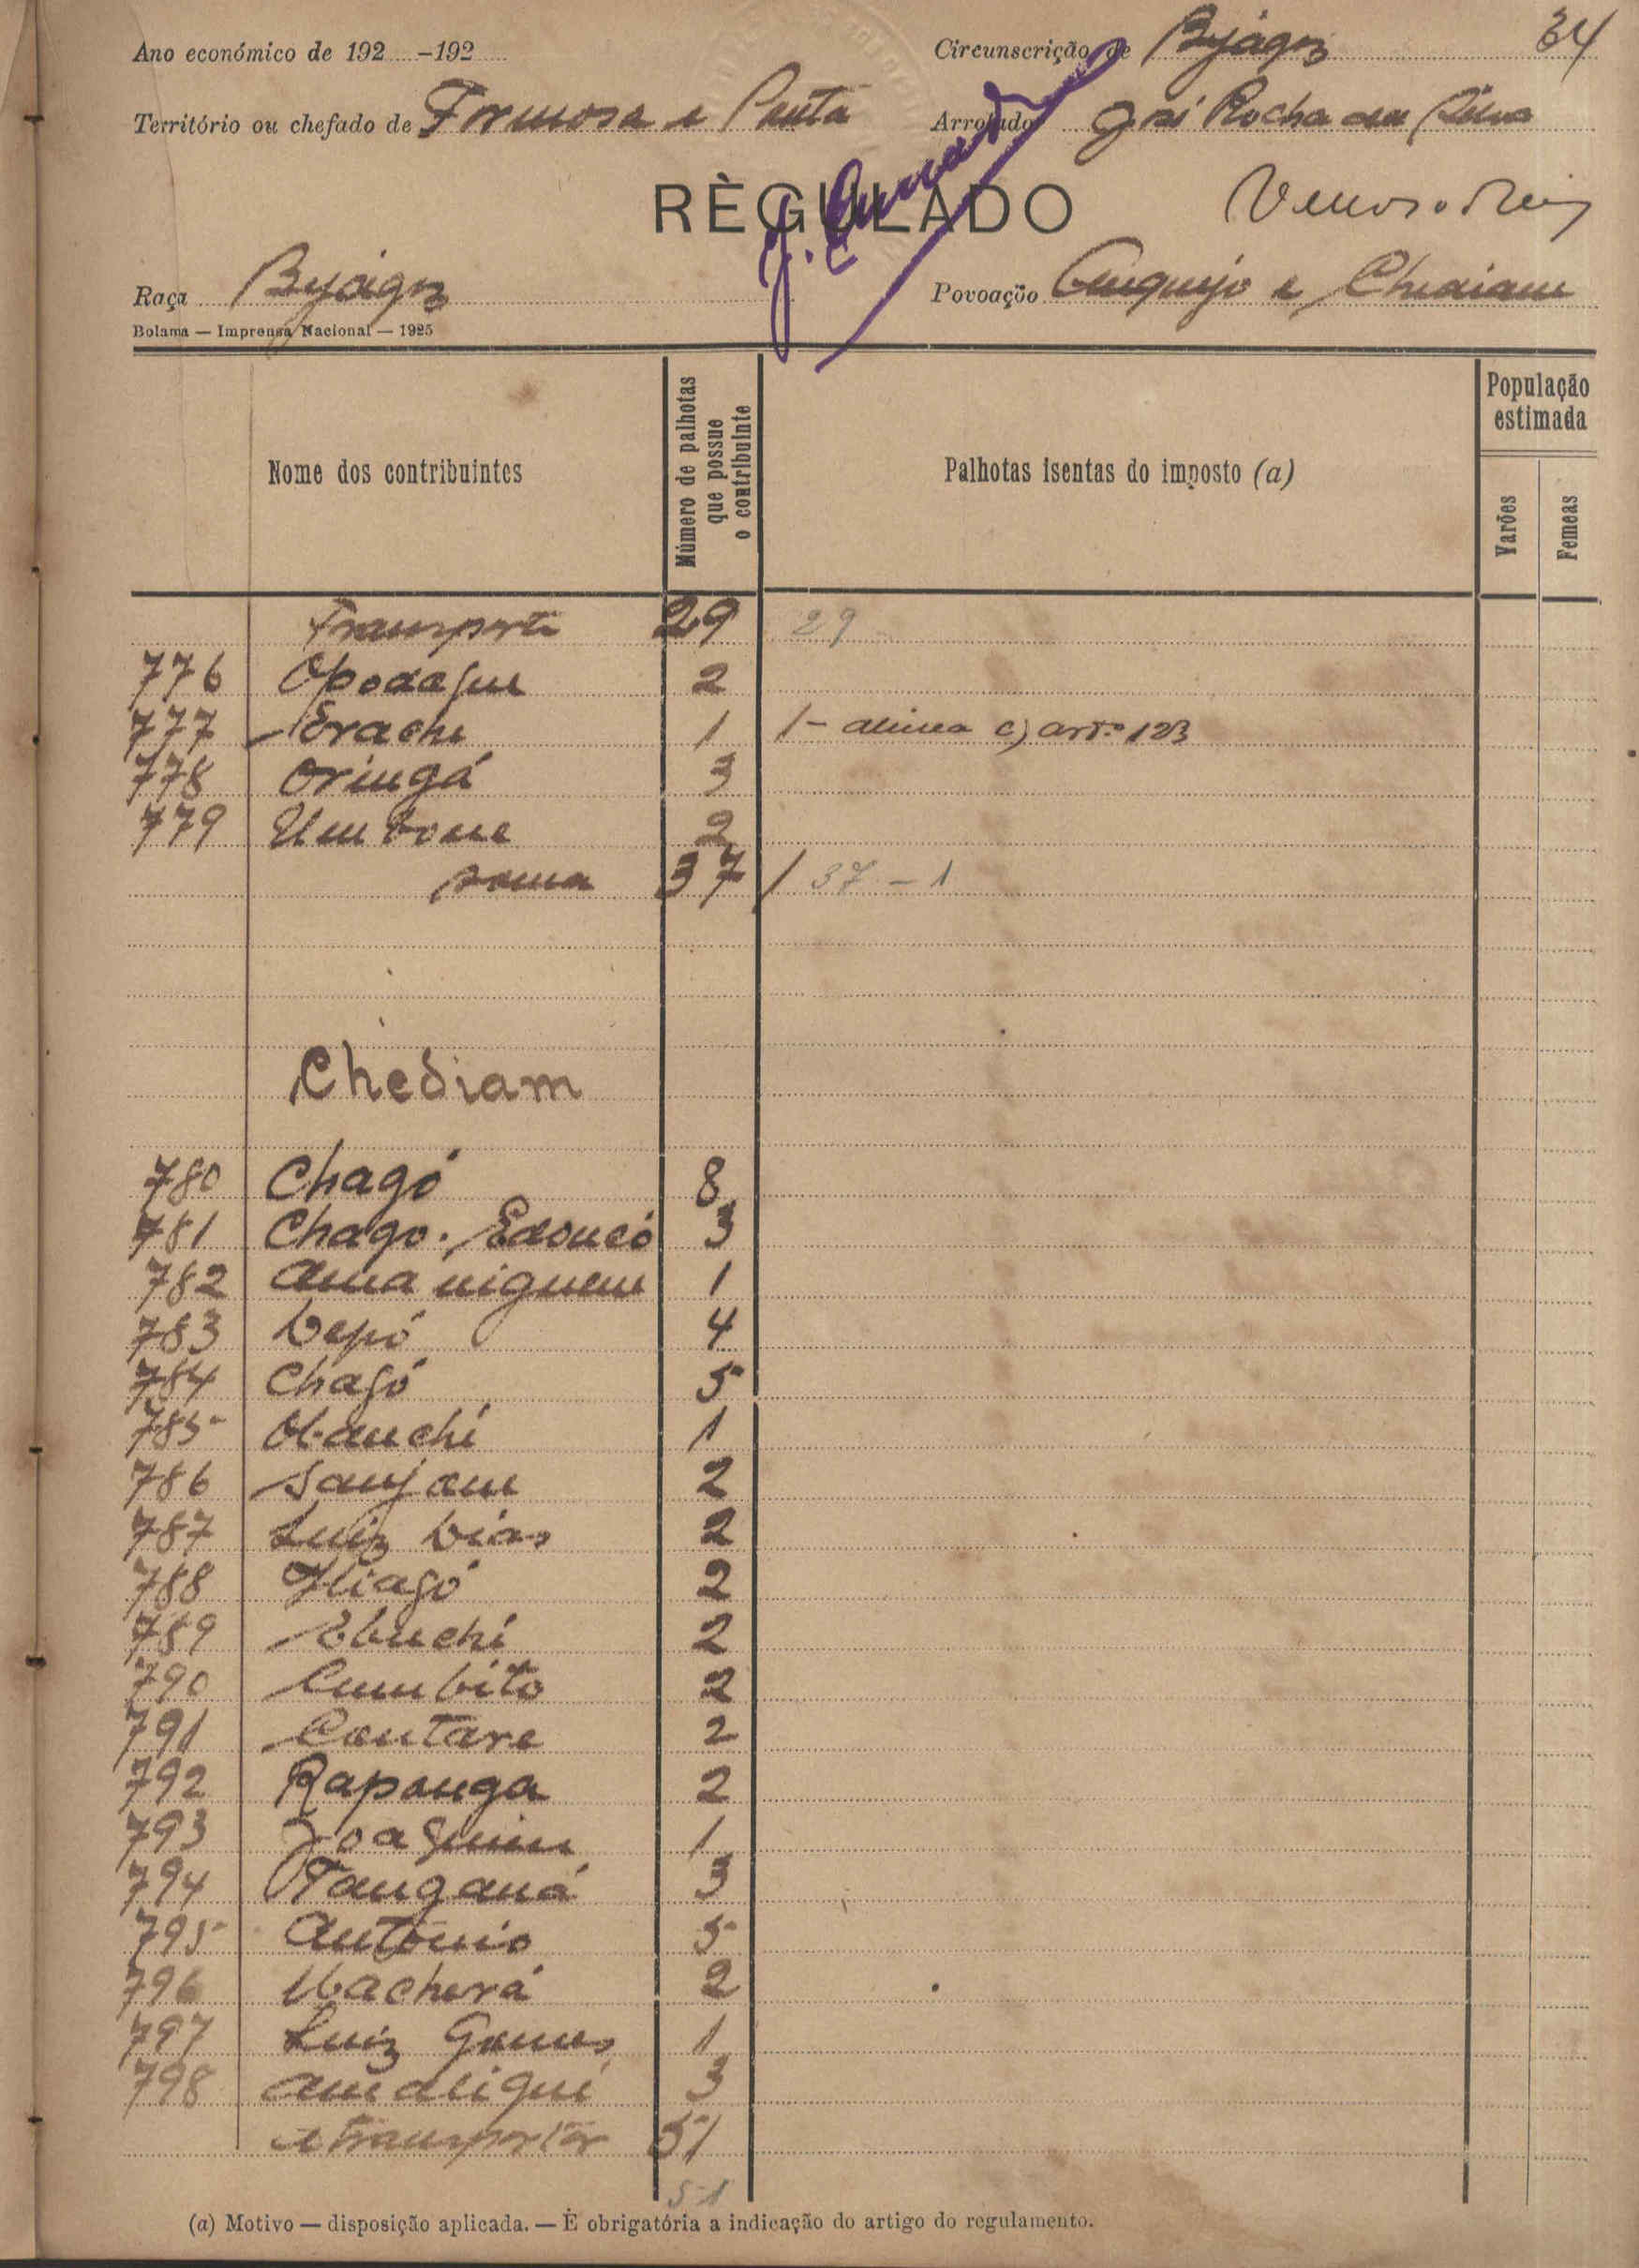 Ano económico de 192 -192
Circunscrição de Byágoz 34
Território ou chefado de Formosa e Ponta
Arrolador José Rocha da Silva
RÈGULADO
Raça Byágoz
Povoação Anquejo e Chediam
Bolama — Imprensa Nacional — 1925
Nome dos contribuintes
Número de palhotas que possue o contribuinte
Palhotas isentas do imposto (a)
População estimada
Varões
Femeas
Transporte 29 29
776 Opodaque 2
777 Erache 1 1 - alinea c) artº 123
778 Oringá 3
779 Umbone 2
soma 37 / 37 - 1
Chediam
780 Chagó 8
781 Chago. Edoncó 3
782 Ama niguem 1
783 Depó 4
784 Chagó 5
785 Obanchi 1
786 Sanjam 2
787 Luiz Dias 2
788 Thiagó 2
789 Ebuchi 2
790 Cumbito 2
791 Cantare 2
792 Raponga 2
793 Joaquim 1
794 Tanganá 3
795 António 5
796 Ubacherá 2
797 Luiz Gomes 1
798 Amaligui 3
a transportar 51
51
(a) Motivo — disposição aplicada. — È obrigatória a indicação do artigo do regulamento.